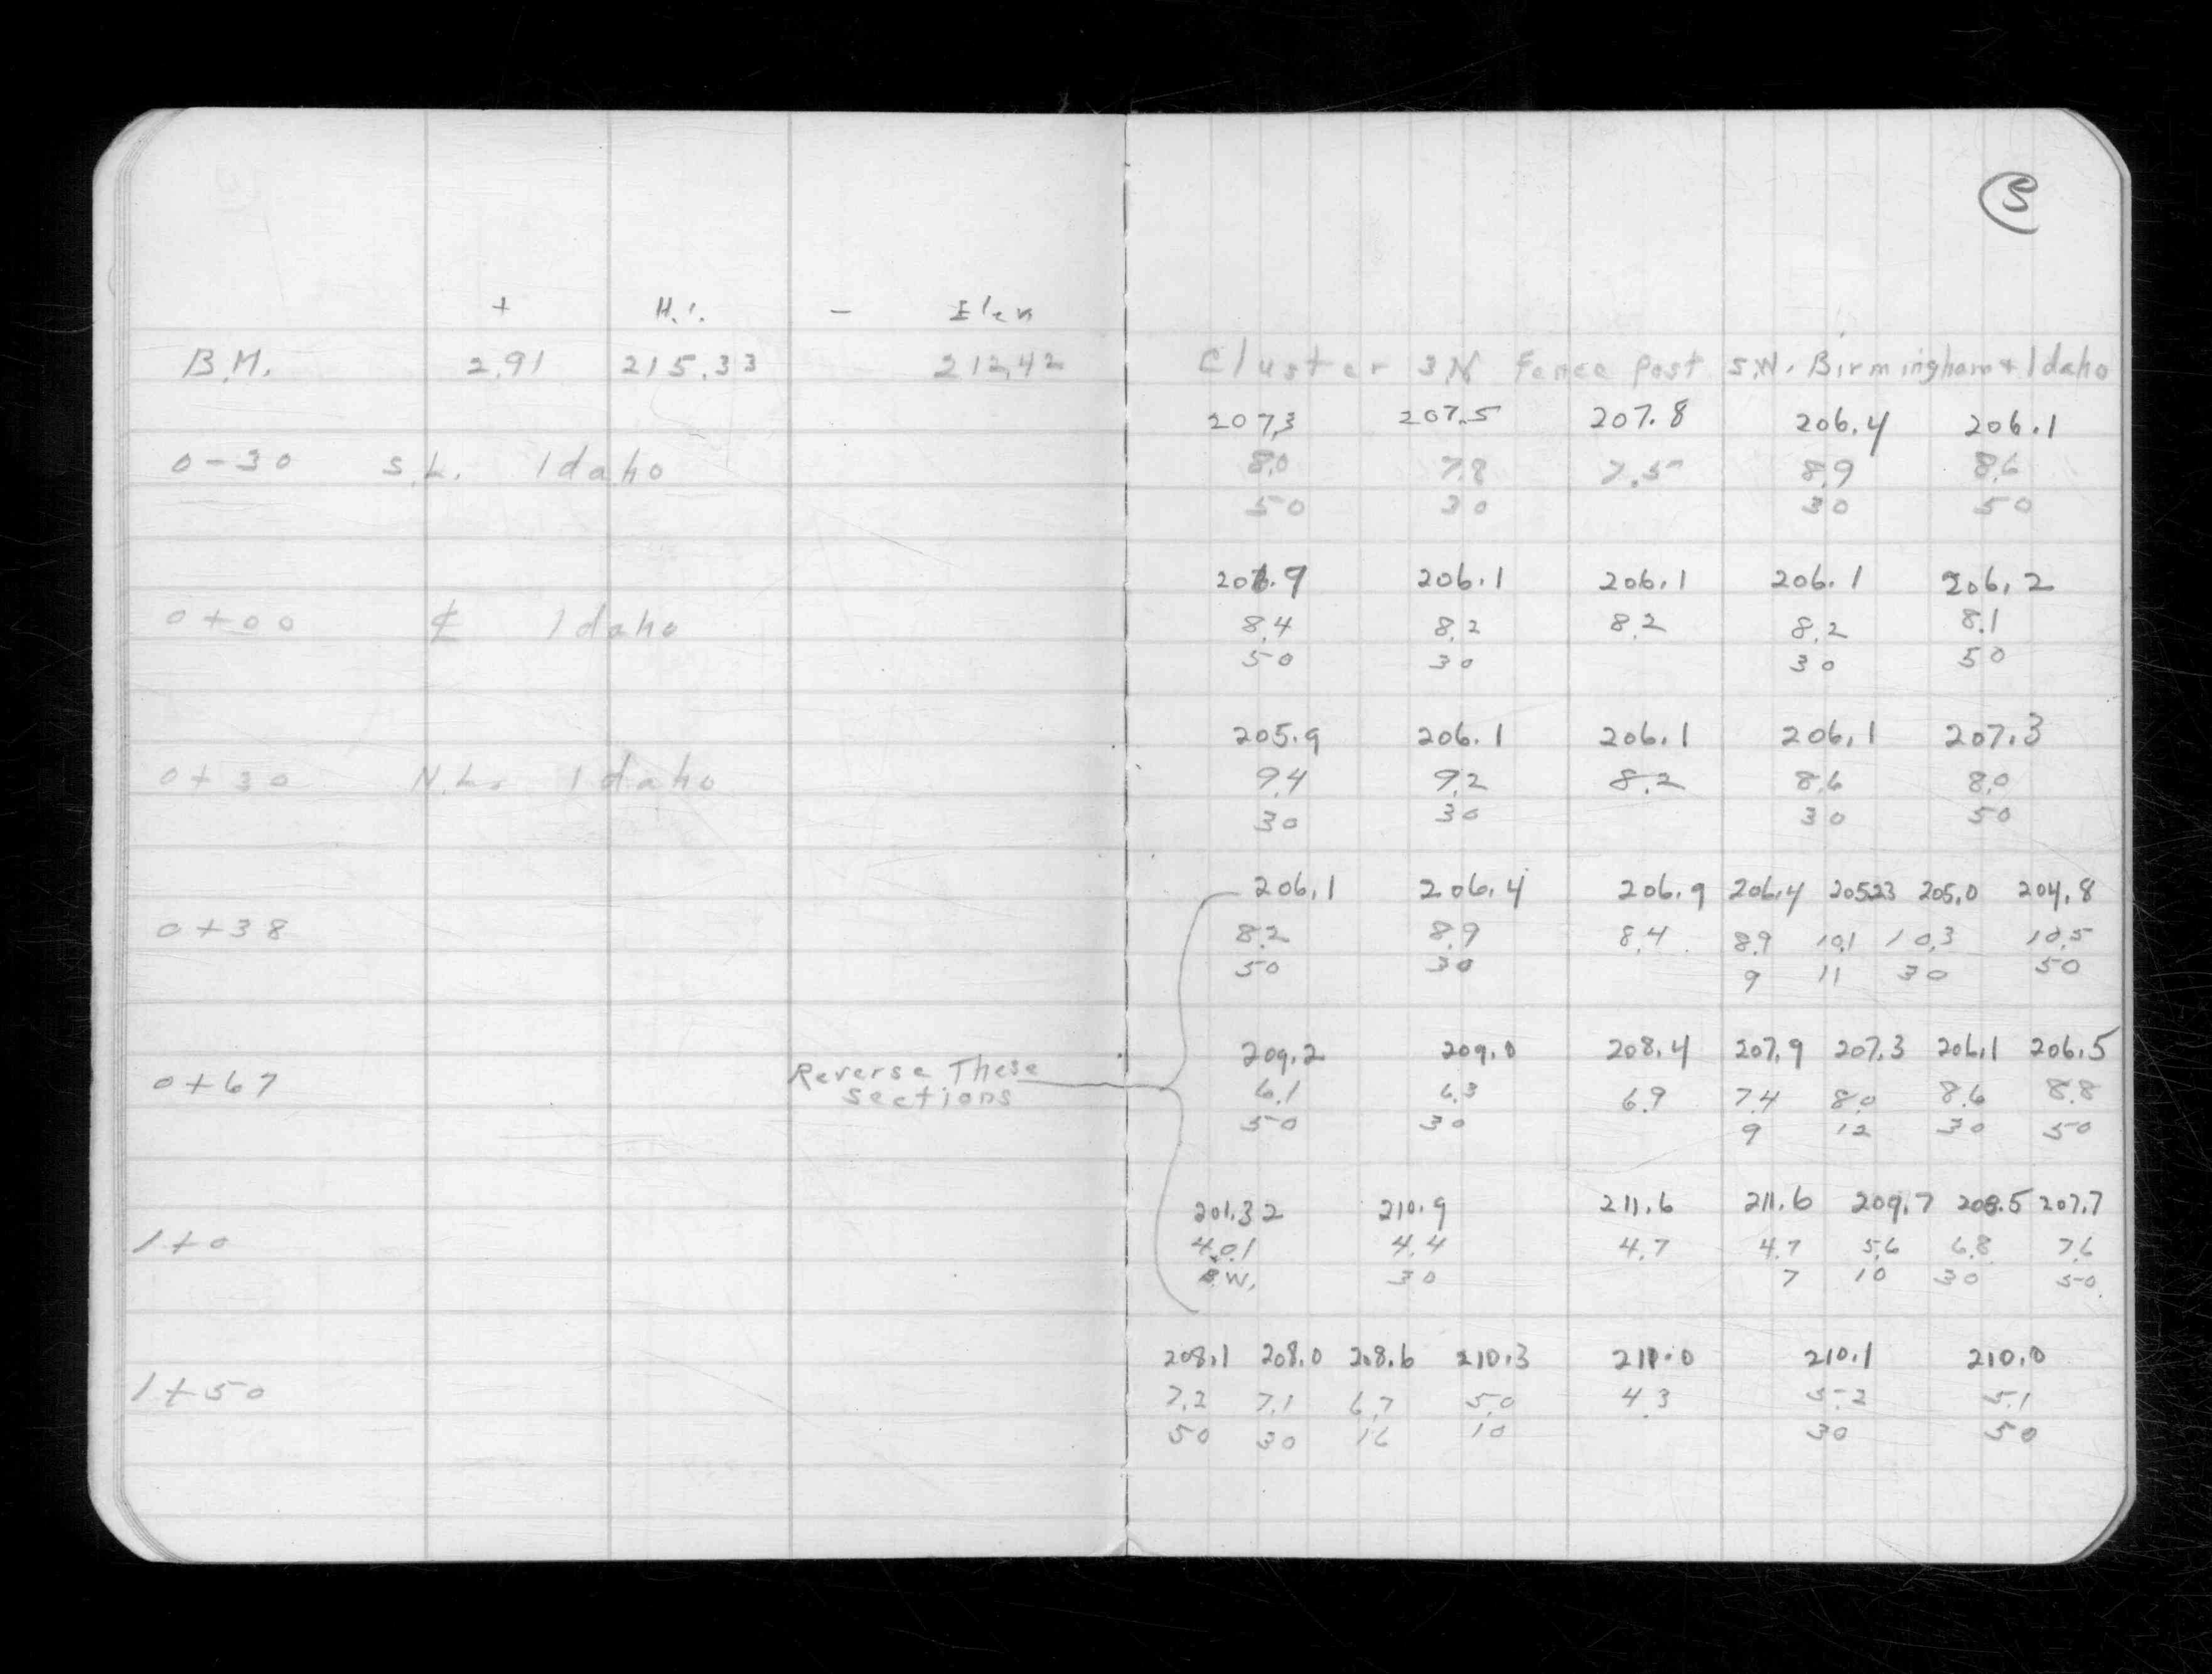 5
+ H.I. - Elev
B.M. 2.91 215.33 212.42 Cluster 3N Fence Post S.W. Birmingham + Idaho
207.3 207.5 207.8 206.4 206.1
0-30 S.L. Idaho 8.0 7.8 7.5 8.9 8.6
50 30 30 50
206.1 206.1 206.1 206.2
0+00 ₵ Idaho 8.4 8.2 8.2 8.2 8.1
50 30 30 50
205.9 206.1 206.1 206.1 207.3
0+30 N.L. Idaho 9.4 9.2 8.2 8.6 8.0
30 30 30 50
206.1 206.4 206.9 206.4 205.23 205.0 204.8
0+38 8.2 8.9 8.4 8.9 10.1 10.3 10.5
50 30 9 11 30 50
209.2 209.0 208.4 207.9 207.3 206.1 206.5
0+67 Reverse These 6.1 6.3 6.9 7.4 8.0 8.6 8.8
sections 50 30 9 12 30 50
201.32 210.9 211.6 211.6 209.7 208.5 207.7
1+0 4.01 4.4 4.7 4.7 5.6 6.8 7.6
B.W. 30 7 10 30 50
208.1 208.0 208.6 210.3 211.0 210.1 210.0
1+50 7.2 7.1 6.7 5.0 4.3 5.2 5.1
50 30 16 10 30 50